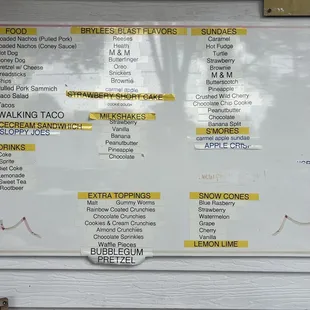 FOOD
oaded Nachos (Pulled Pork)
oaded Nachos (Coney Sauce)
Hot Dog
oney Dog
retzel w/ Cheese
readsticks
hips
ulled Pork Sammich
aco Salad
acos
WALKING TACO
ICECREAM SANDWHICH
SLOPPY JOES
DRINKS
Coke
Sprite
iet Coke
emonade
Sweet Tea
Rootbeer
BRYLEES BLAST FLAVORS
Reeses
Heath
M & M
Butterfinger
Oreo
Snickers
Brownie
caramel apple
STRAWBERRY SHORT CAKE
MILKSHAKES
Strawberry
Vanilla
Banana
Peanutbutter
Pineapple
Chocolate
EXTRA TOPPINGS
Malt Gummy Worms
Rainbow Coated Crunchies
Chocolate Crunchies
Cookies & Cream Crunchies
Almond Crunchies
Chocolate Sprinkles
Waffle Pieces
BUBBLEGUM
PRETZEL
SUNDAES
Caramel
Hot Fudge
Turtle
Strawberry
Brownie
M & M
Butterscotch
Pineapple
Crushed Wild Cherry
Chocolate Chip Cookie
Chocolate
Peanutbutter
Banana Split
S'MORES
carmel apple sundae
APPLE CRISP
SNOW CONES
Blue Rasberry
Strawberry
Watermelon
Grape
Cherry
Vanilla
LEMON LIME